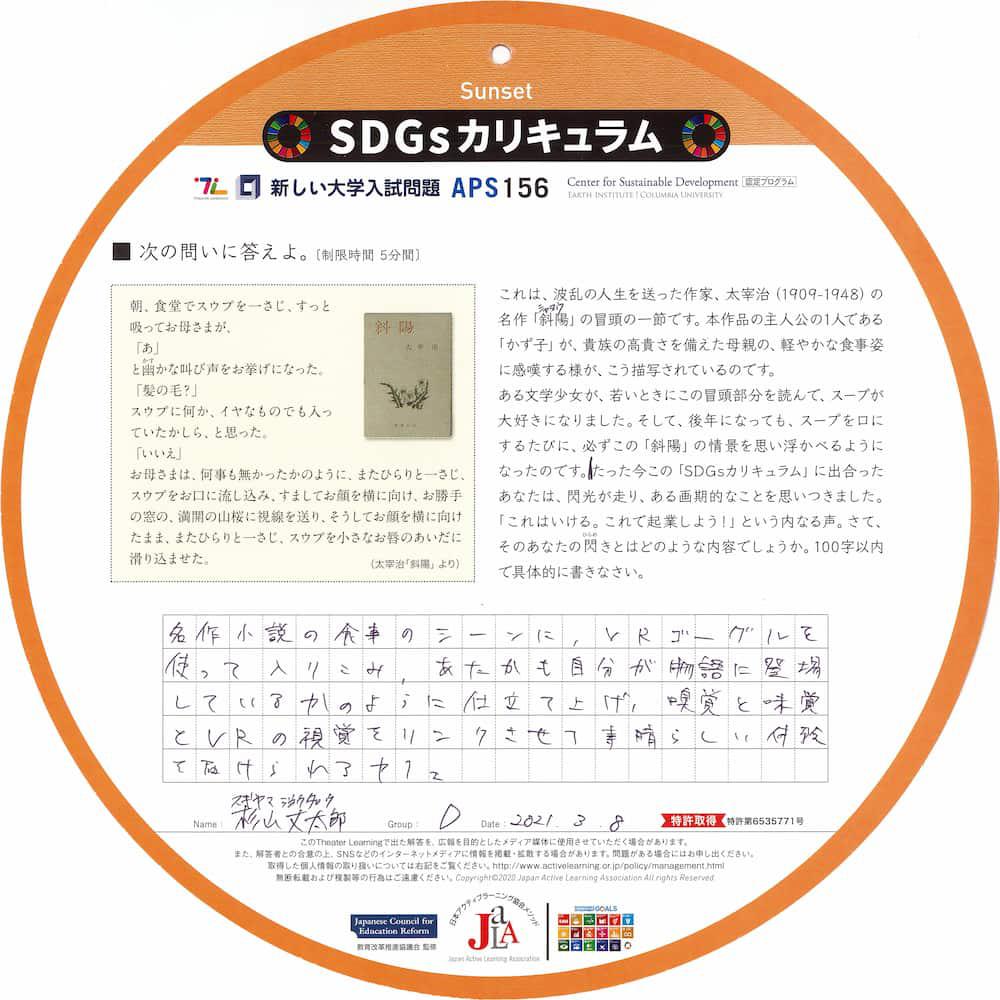 Sunset
SDGsカリキュラム
新しい大学入試問題 APS156
Center for Sustainable Development 認定プログラム
EARTH INSTITUTE | COLUMBIA UNIVERSITY
■ 次の問いに答えよ。〔制限時間 5分間〕
朝、食堂でスウプを一さじ、すっと
吸ってお母さまが、
「あ」
と幽かな叫び声をお挙げになった。
かす
「髪の毛?」
スウプに何か、イヤなものでも入っ
ていたかしら、と思った。
「いいえ」
お母さまは、何事も無かったかのように、またひらりと一さじ、
スウプをお口に流し込み、すましてお顔を横に向け、お勝手
の窓の、満開の山桜に視線を送り、そうしてお顔を横に向け
たまま、またひらりと一さじ、スウプを小さなお唇のあいだに
滑り込ませた。
(太宰治「斜陽」より)
斜陽
太宰治
これは、波乱の人生を送った作家、太宰治(1909-1948)の
シャヨウ
名作「斜陽」の冒頭の一節です。本作品の主人公の1人である
「かず子」が、貴族の高貴さを備えた母親の、軽やかな食事姿
に感嘆する様が、こう描写されているのです。
ある文学少女が、若いときにこの冒頭部分を読んで、スープが
大好きになりました。そして、後年になっても、スープを口に
するたびに、必ずこの「斜陽」の情景を思い浮かべるように
なったのです。たった今この「SDGsカリキュラム」に出合った
あなたは、閃光が走り、ある画期的なことを思いつきました。
「これはいける。これで起業しよう!」という内なる声。さて、
ひらめ
そのあなたの閃きとはどのような内容でしょうか。100字以内
で具体的に書きなさい。
名作小説の食事のシーンに,VRゴーグルを
使って入りこみ,あたかも自分が物語に登場
しているかのように仕立て上げ,嗅覚と味覚
とVRの視覚をリンクさせて素晴らしい体験
Name : 杉山丈太郎 Group : D Date : 2021. 3. 8
特許取得 特許第6535771号
このTheater Learningで出た解答を、広報を目的としたメディア媒体に使用させていただく場合があります。
また、解答者との合意の上、SNSなどのインターネットメディアに情報を掲載・拡散する場合があります。問題がある場合にはお申し出ください。
取得した個人情報の取り扱いについては右記をご覧ください。http://www.activelearning.or.jp/policy/management.html
無断転載および複製等の行為はご遠慮ください。Copyright©2020 Japan Active Learning Association All rights Reserved.
Japanese Council for
Education Reform
教育改革推進協議会 監修
日本アクティブラーニング協会メソッド
JaLA
Japan Active Learning Association
GOALS